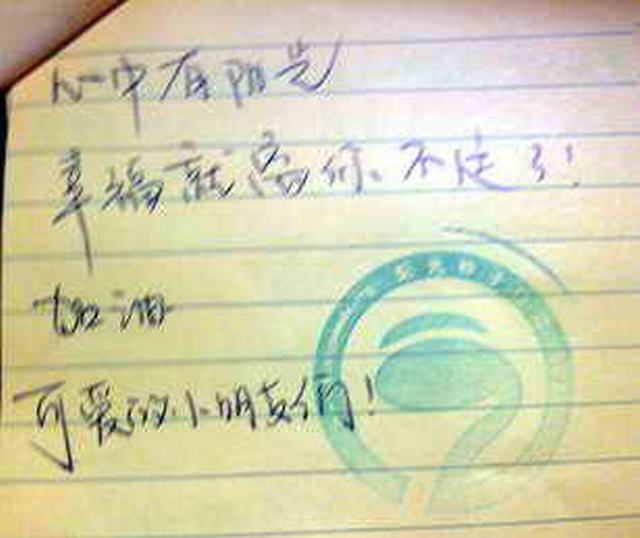 心中有阳光
幸福就离你不远了!
加油
可爱的小朋友们!